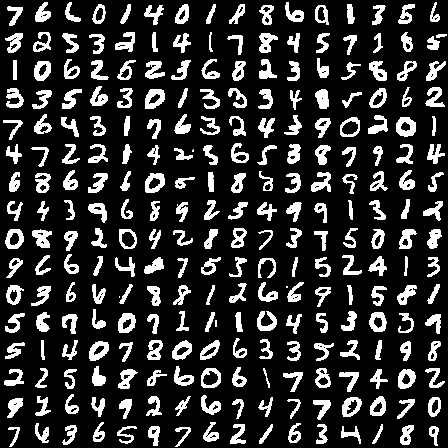 7 6 6 0 1 4 0 1 8 8 6 0 1 3 5 6
3 2 5 3 2 1 4 1 7 8 4 5 7 1 8 5
1 0 6 2 6 2 3 6 8 2 3 6 5 8 8 8
3 3 5 6 3 0 1 3 3 3 4 8 5 0 6 2
7 6 4 3 1 7 6 3 2 4 3 9 0 2 0 1
4 7 2 2 1 4 2 5 6 5 3 8 7 9 2 4
6 8 6 3 6 0 5 1 8 8 3 2 9 2 6 5
4 4 3 9 6 8 9 2 5 4 9 9 1 3 1 2
0 8 9 2 0 4 2 8 8 7 3 7 5 0 8 8
9 6 6 1 4 7 5 3 0 1 5 2 4 1 3
0 3 6 6 1 8 8 1 2 6 6 9 1 5 8 1
5 6 7 6 0 9 1 1 1 0 4 5 3 0 3 9
5 1 4 0 7 8 0 0 6 3 3 5 2 1 9 8
2 2 5 6 8 8 6 0 6 1 7 8 7 4 0 2
9 2 6 4 9 2 4 6 9 4 7 7 0 0 7 0
7 6 3 6 5 9 7 6 2 1 6 3 4 1 8 9